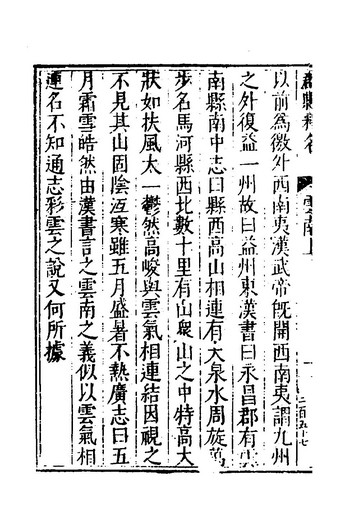 郡縣釋名 雲南上
以前為徼外西南夷漢武帝旣開西南夷謂九州
之外復益一州故曰益州東漢書曰永昌郡有雲
南縣南中志曰縣西高山相連有大泉水周旋萬
步名馬河縣西北數十里有山眾山之中特高大
狀如扶風太一鬱然高峻與雲氣相連結因視之
不見其山固陰沍寒雖五月盛暑不熱廣志曰五
月霜雪皓然由漢書言之雲南之義似以雲氣相
連名不知通志彩雲之說又何所據
二百五十七